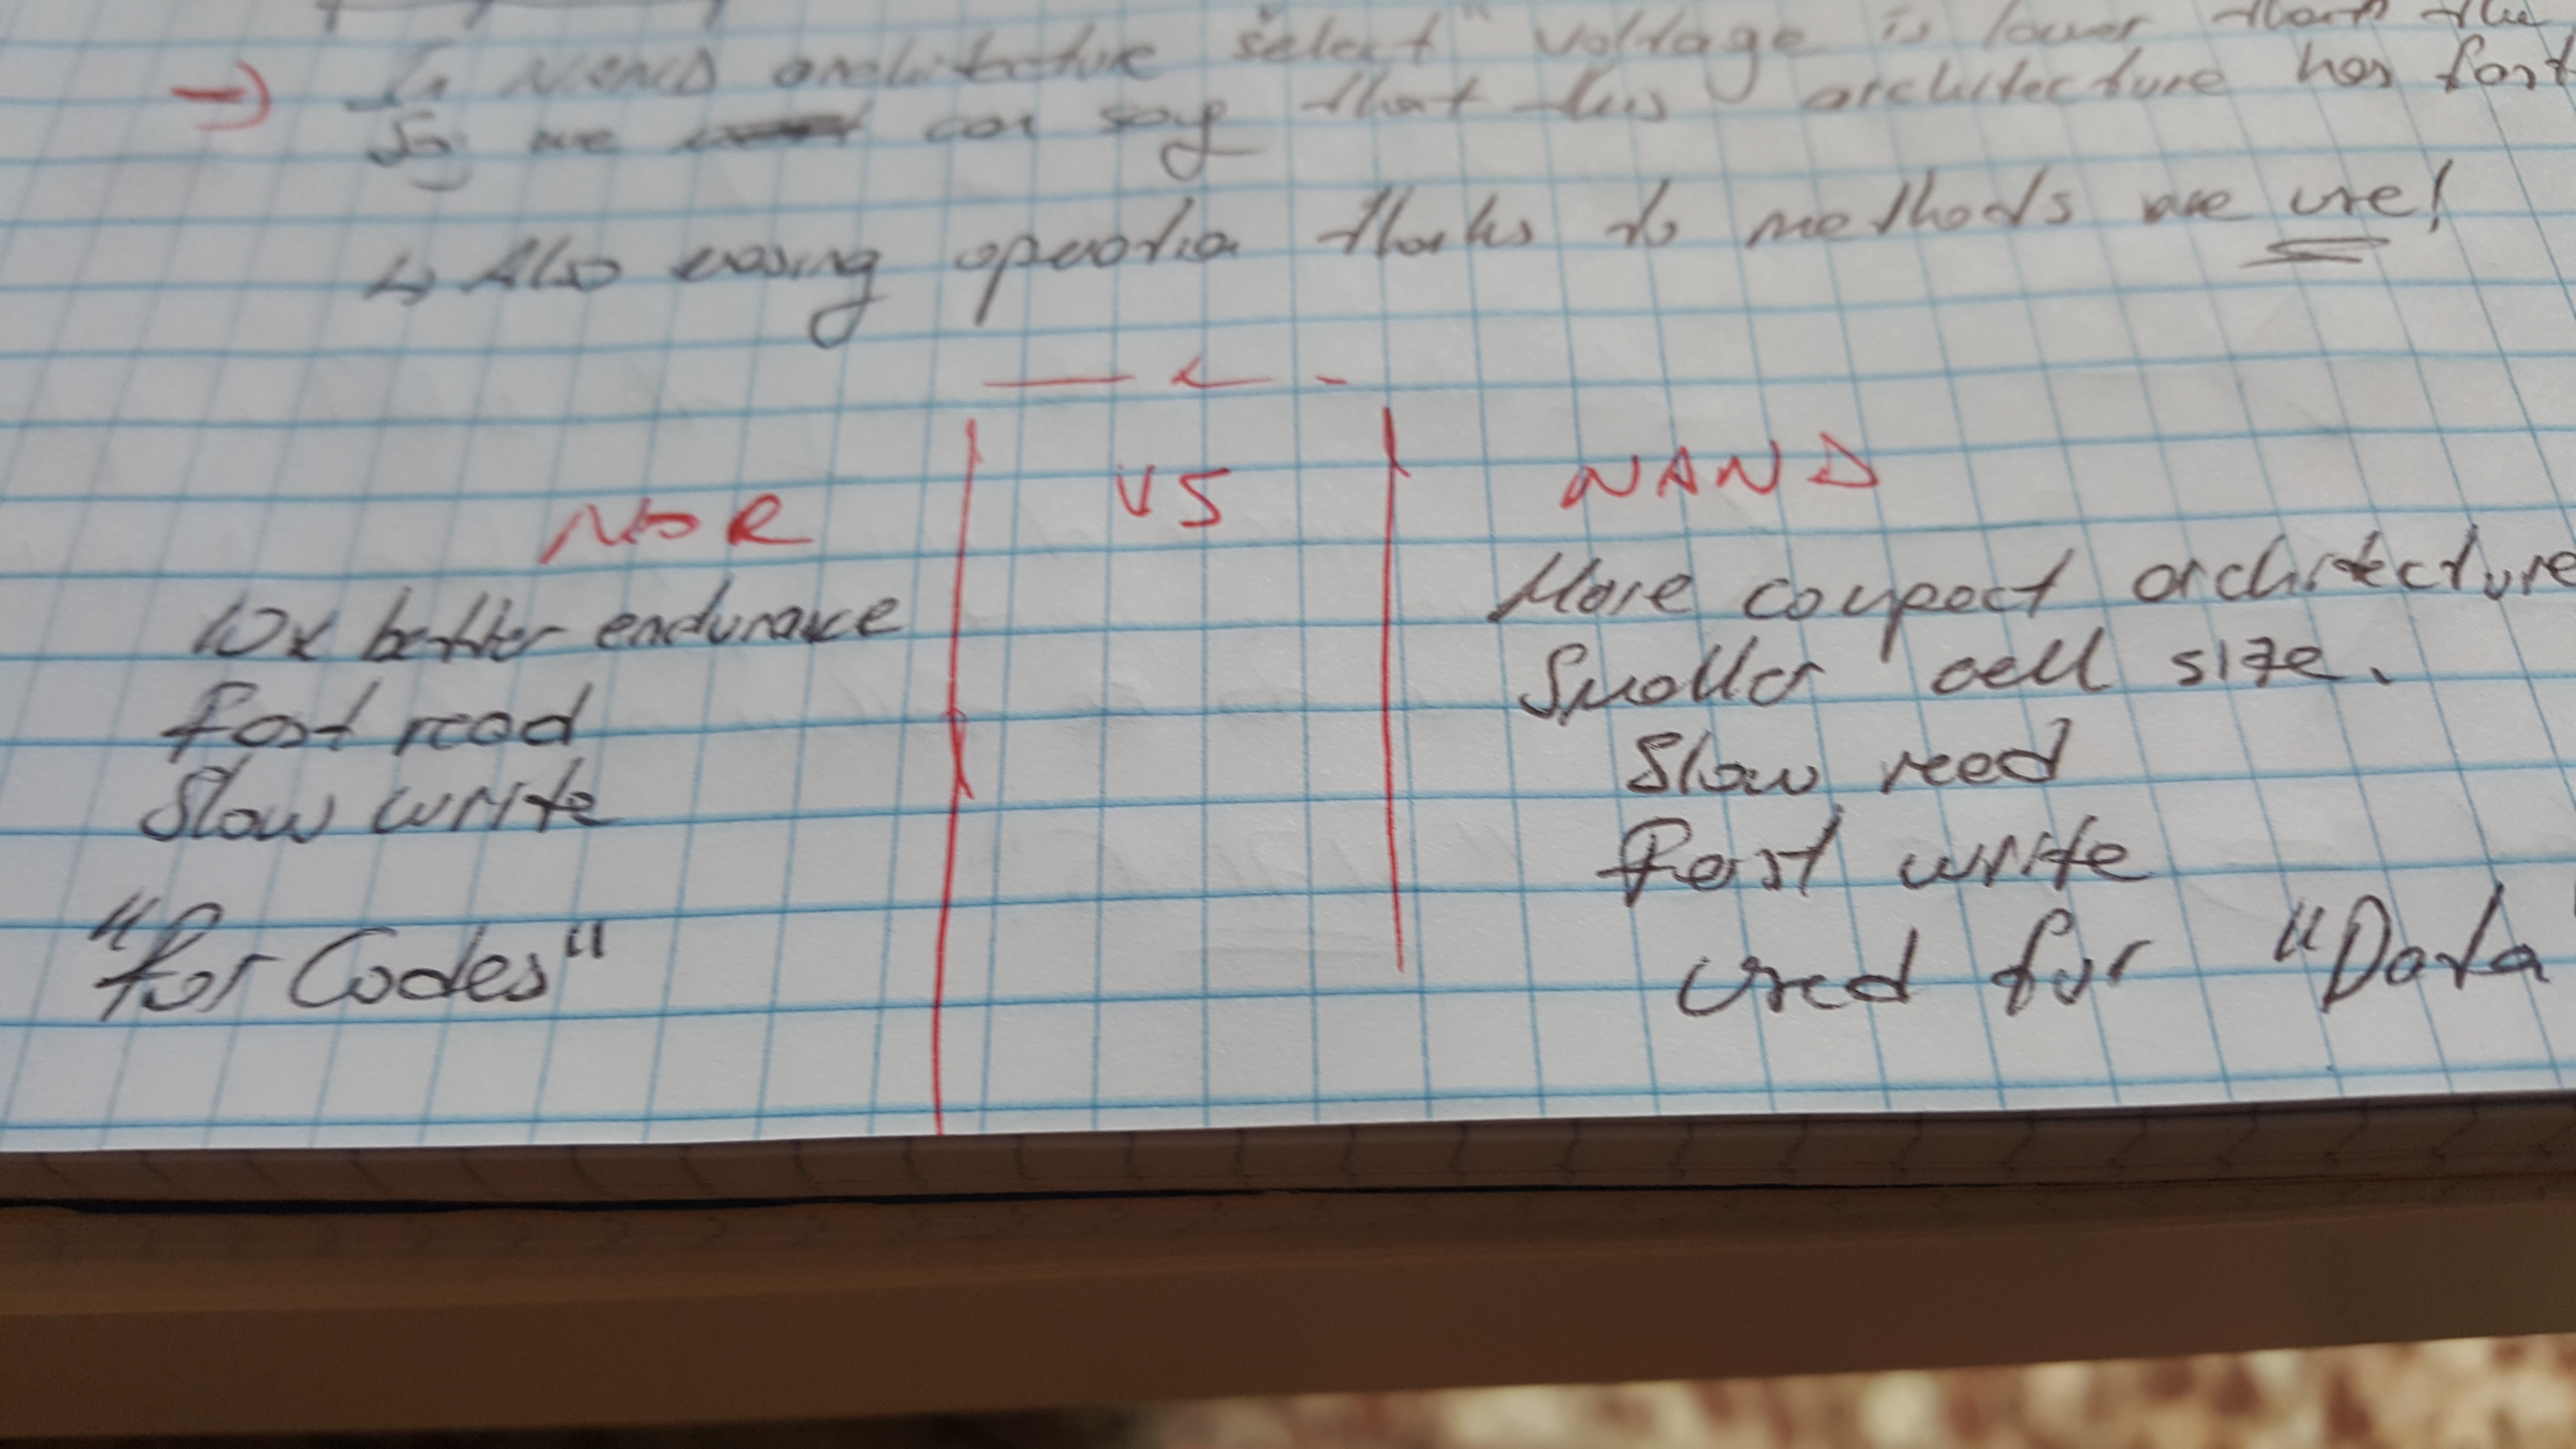 → In NAND architecture "select" voltage is lower than the
So we can say that this architecture has fast
↳ Also erasing operation thanks to methods we use!
NOR VS NAND
10x better endurance
Fast read
Slow write
"for Codes"
More compact architecture
Smaller cell size.
Slow read
Fast write
Used for "Data"